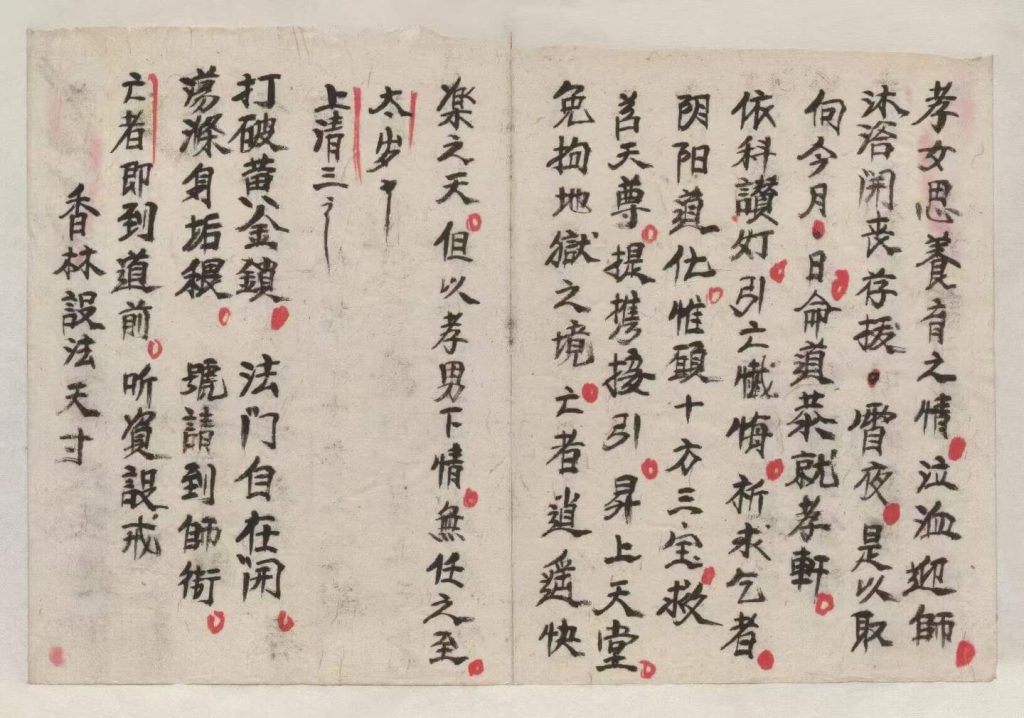 孝女思養育之情泣血迎師
沐浴開喪存拔霄夜是以取
向今月日命道恭就孝軒
依科讃灯引亡懺悔祈求乞者
阴阳道仕惟願十方三宝救
苦天尊提携接引昇上天堂
免拘地獄之境亡者逍遥快
楽之天但以孝男下情無任之至
太岁
上清三
打破黄金鎖 法门自在開
荡滌身垢穢 號請到師衙
亡者即到道前听宣設戒
香林設法天寸